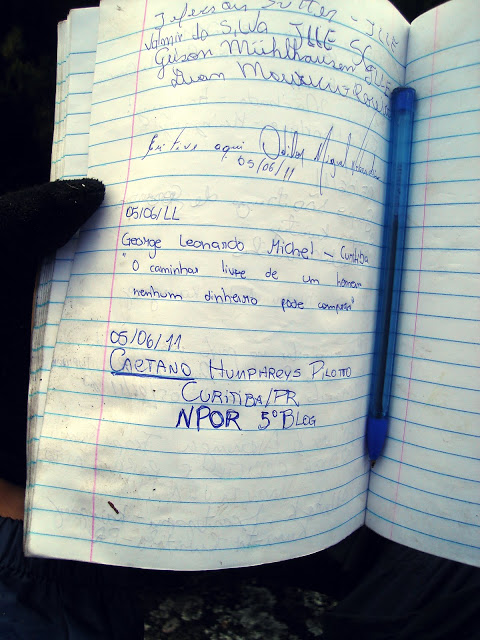 Jeferson Sutter - JLLE
Valmir da Silva JLLE SC
Gilson Mühlhausen JLLE
Dean
Estive aqui Miguel
05/06/11
05/06/LL
George Leonardo Michel - Curitiba
"O caminhar livre de um homem
nenhum dinheiro pode comprar"
05/06/11
CAETANO HUMPHREYS PILOTTO
CURITIBA/PR
NPOR 5º BLOG